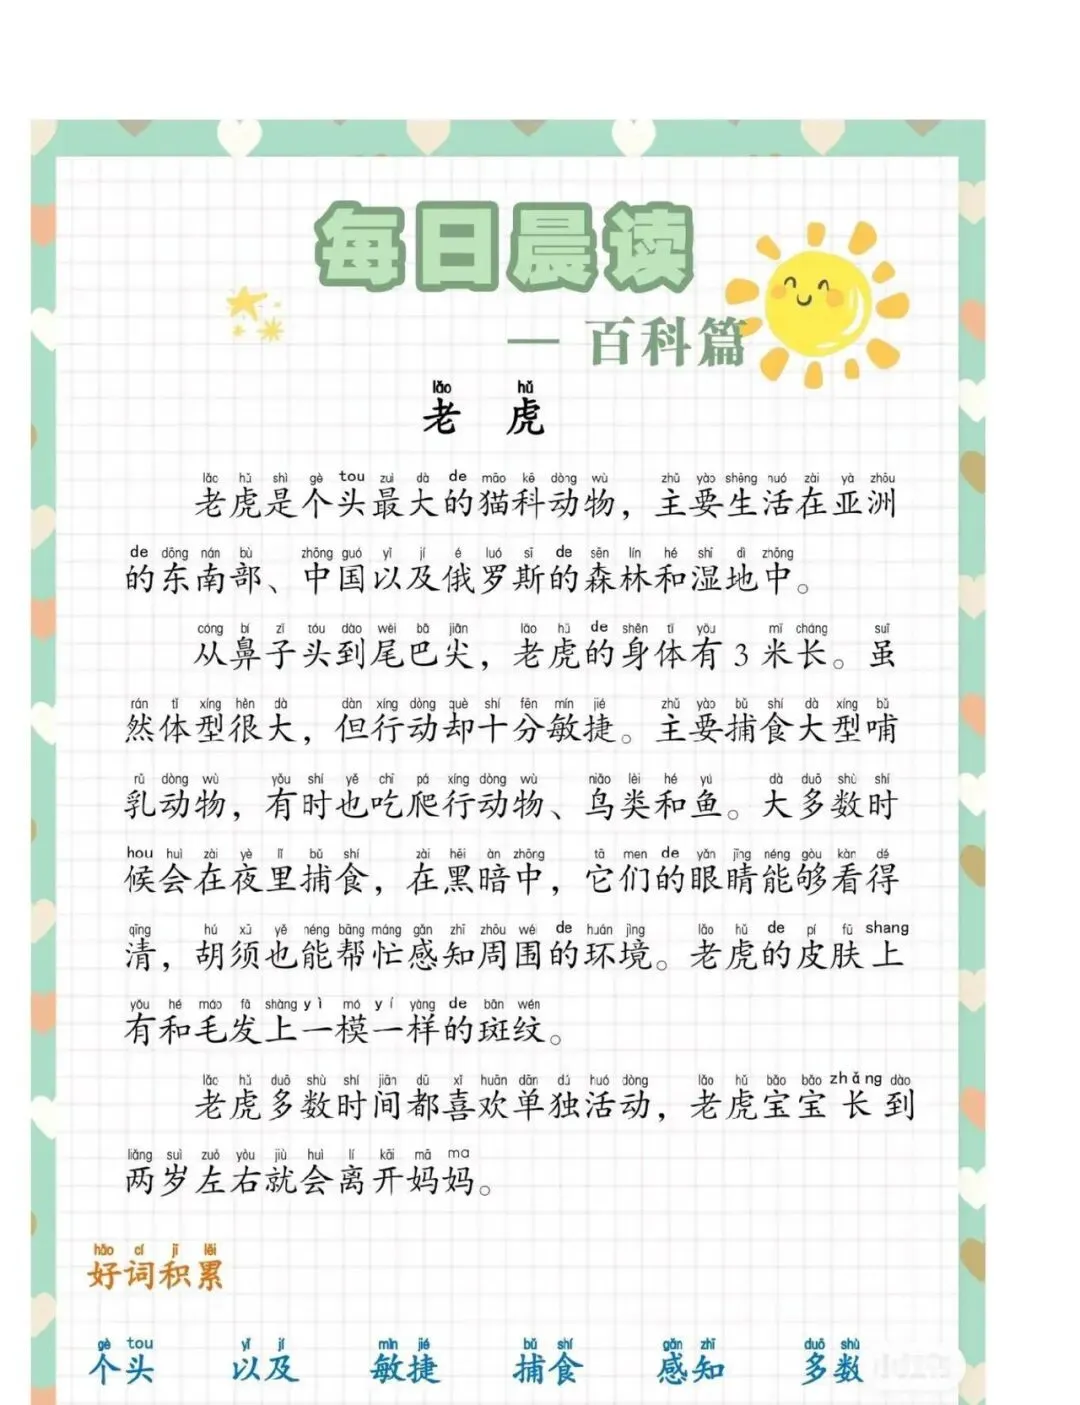 每日晨读
— 百科篇
lǎo hǔ
老 虎
lǎo hǔ shì gè tou zuì dà de māo kē dòng wù zhǔ yào shēng huó zài yà zhōu
老虎是个头最大的猫科动物，主要生活在亚洲
de dōng nán bù zhōng guó yǐ jí é luó sī de sēn lín hé shī dì zhōng
的东南部、中国以及俄罗斯的森林和湿地中。
cóng bí zǐ tóu dào wěi bā jiān lǎo hǔ de shēn tǐ yǒu mǐ cháng suī
从鼻子头到尾巴尖，老虎的身体有 3 米长。虽
rán tǐ xíng hěn dà dàn xíng dòng què shí fēn mǐn jié zhǔ yào bǔ shí dà xíng bǔ
然体型很大，但行动却十分敏捷。主要捕食大型哺
rǔ dòng wù yǒu shí yě chī pá xíng dòng wù niǎo lèi hé yú dà duō shù shí
乳动物，有时也吃爬行动物、鸟类和鱼。大多数时
hou huì zài yè lǐ bǔ shí zài hēi àn zhōng tā men de yǎn jīng néng gòu kàn dé
候会在夜里捕食，在黑暗中，它们的眼睛能够看得
qīng hú xū yě néng bāng máng gǎn zhī zhōu wéi de huán jìng lǎo hǔ de pí fū shang
清，胡须也能帮忙感知周围的环境。老虎的皮肤上
yǒu hé máo fà shàng yì mó yí yàng de bān wén
有和毛发上一模一样的斑纹。
lǎo hǔ duō shù shí jiān dū xǐ huān dān dú huó dòng lǎo hǔ bǎo bǎo zhǎng dào
老虎多数时间都喜欢单独活动，老虎宝宝长到
liǎng suì zuǒ yòu jiù huì lí kāi mā ma
两岁左右就会离开妈妈。
hǎo cí jī lěi
好词积累
gè tou yǐ jí mǐn jié bǔ shí gǎn zhī duō shù
个头 以及 敏捷 捕食 感知 多数